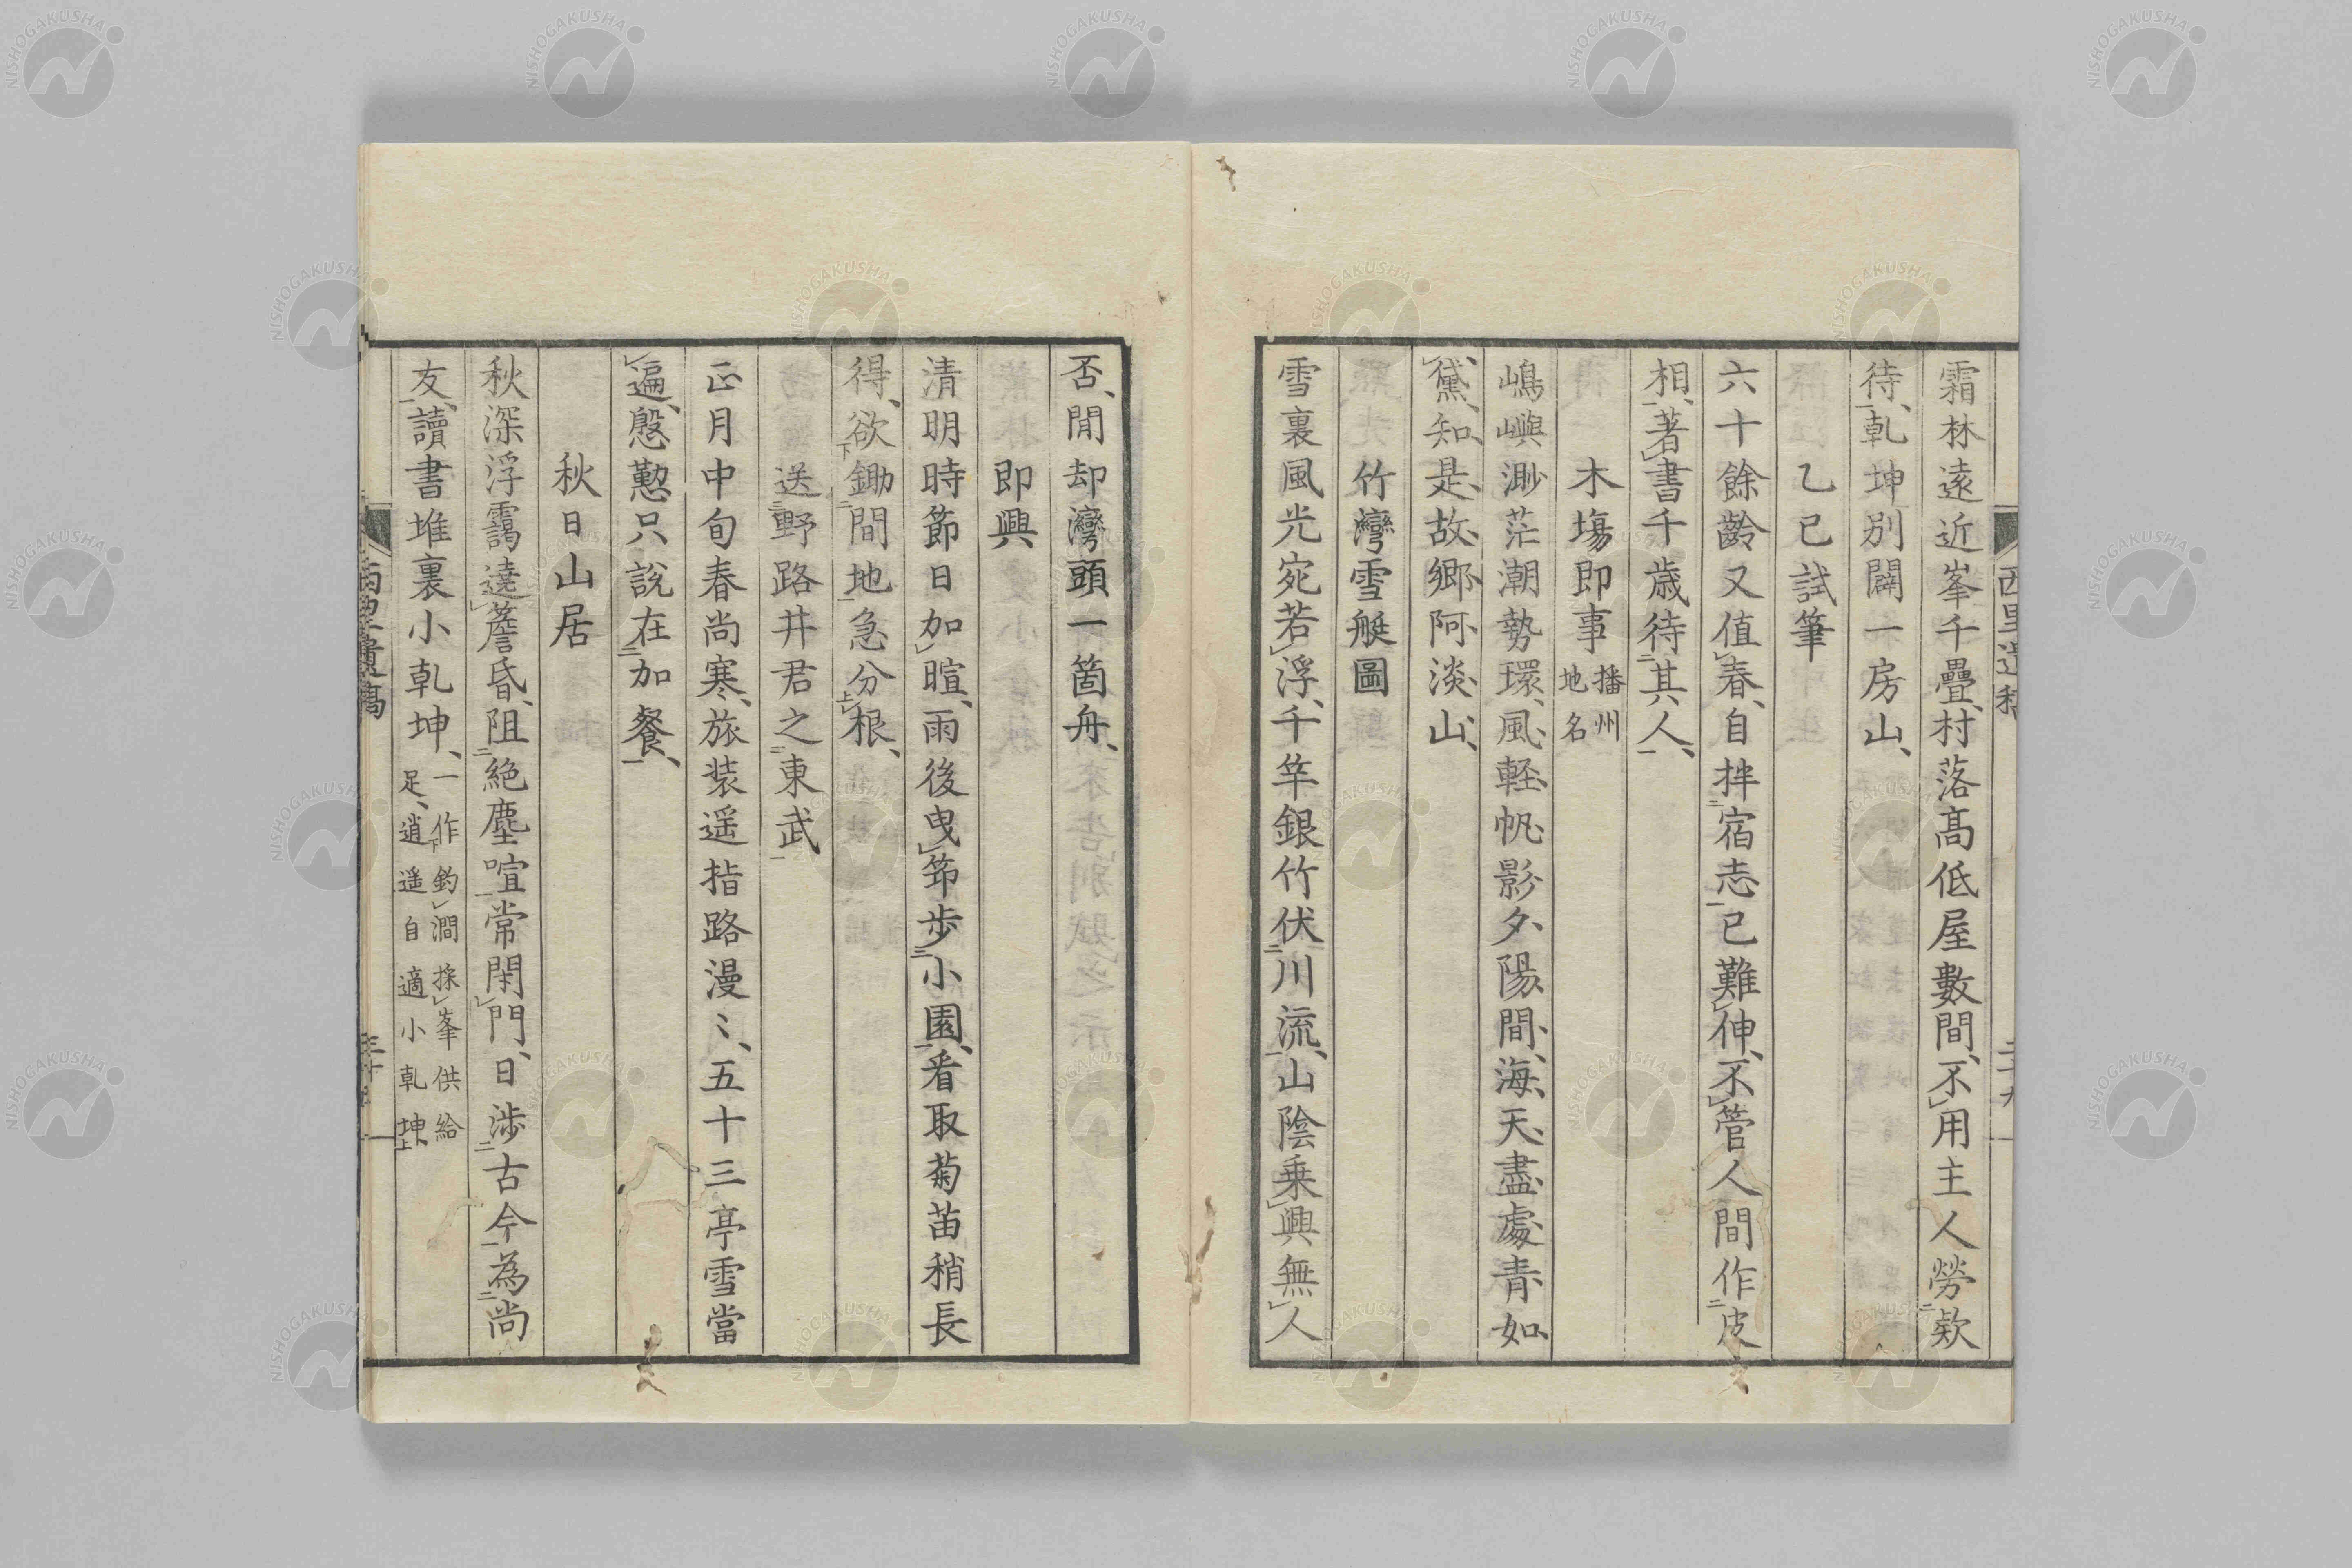 西里遺稿
霜林遠近峯千疊、村落髙低屋數間、不用主人勞欵
待、乹坤別闢一房山、
乙巳試筆
六十餘齡又值春、自拌宿志已難伸、不管人間作皮
相、著書千歳待其人、
木塲即事 播州地名
嶋嶼渺茫潮勢環、風、軽、帆、影、夕、陽、間、海、天、盡、處、青、如、
黛、知、是、故、鄉、阿、淡、山、
竹灣雪艇圖
雪裏風光宛若浮、千竿銀竹伏川流、山陰乗興無人
否、閒却灣頭一箇舟、
即興
清明時節日加暄、雨後曳笻歩小園、看取菊苗稍長
得、欲鋤間地急分根、
送野路井君之東武
正月中旬春尚寒、旅装遥指路漫〻、五十三亭雪當
遍、慇懃只說在加餐、
秋日山居
秋深浮靄遶簷昏、阻絶塵喧常閑門、日涉古今為尚
友、讀書堆裏小乹坤、一作釣澗採峯供給足、逍遥自適小乹坤、
NISHOGAKUSHA